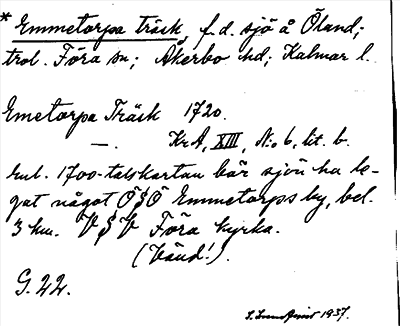 * Emmetorpa träsk, f.d. sjö å Öland;
trol. Föra sn; Åkerbo hd; Kalmar l.
Emetorpa Träsk 1720.
—. KrA, XIII, No 6, lit. b.
Enl. 1700-talskartan bär sjön ha le-
gat något Ö§Ö Emmetorps by, bel.
3 km. V§V Föra kyrka.
(Vänd!).
G. 22.
1937.